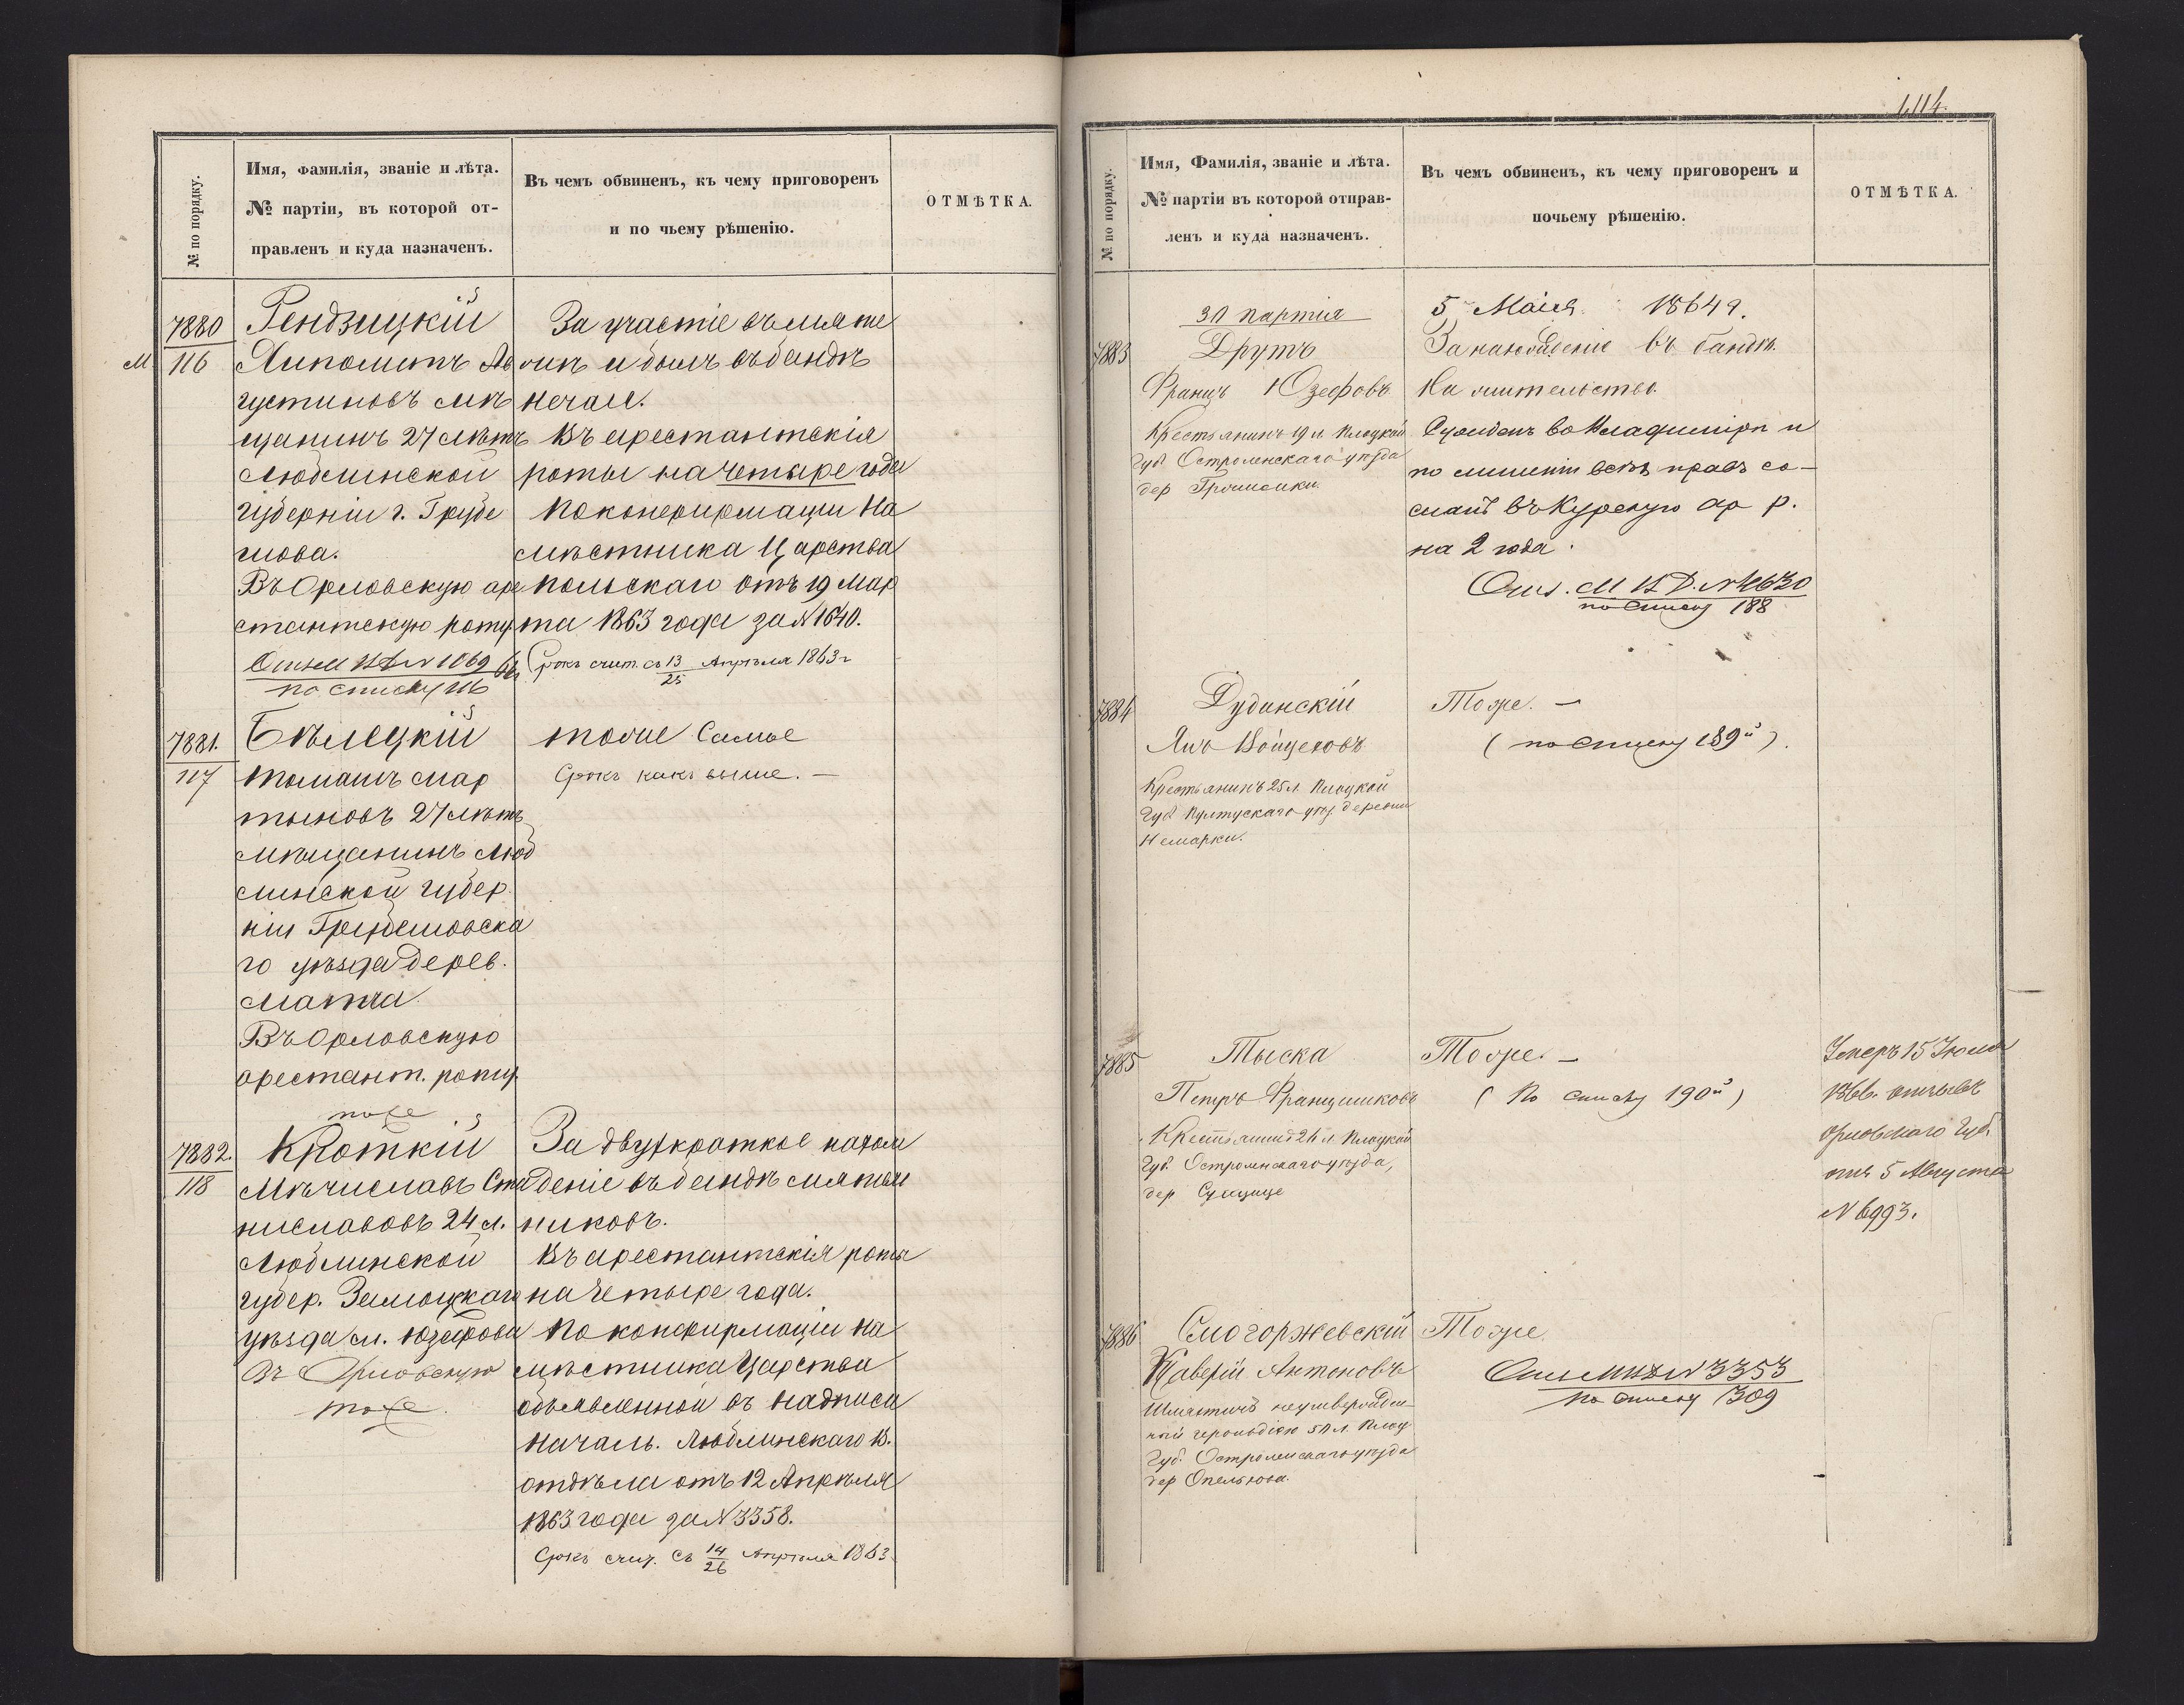 № по порядку.
Имя, фамилія, званіе и лѣта.
№ партіи, въ которой от-
правленъ и куда назначенъ.
Въ чемъ обвиненъ, къ чему приговоренъ
и по чьему рѣшенію.
ОТМѢТКА.
7880
М 116
Гендзицкій
Липолитъ Ав
густиновъ мѣ
щанинъ 27 лѣтъ
Люблинской
губерніи г. Грубе
шова.
Въ Орловскую аре
стантскую роту.
по списку 116
За участіе въ мяте
жѣ и былъ въ бандѣ
Нечая.
Въ арестантскія
роты на четыре года
По конфирмаціи На
мѣстника Царства
Польскаго отъ 19 Мар
та 1863 года за N 1640.
Срокъ счит. съ 13/25 Апрѣля 1863 г
7881.
117
Бѣлецкій
Томашъ Мар
тыновъ 27 лѣтъ
мѣщанинъ Люб
линской губер
ніи Грубешовска
го уѣзда дерев.
Матча
Въ Орловскую
арестант. роту.
тоже
тоже самое
Срокъ какъ выше. —
7882.
118
Кроткій
Мѣчиславъ Ста
ниславовъ 24 л.
Люблинской
губер. Замоцкаго
уѣзда м. Юзефова
Въ Орловскую
тоже.
За двухкратное нахож
деніе въ бандѣ мятеж
никовъ.
Въ арестантскія роты
на четыре года.
По конфирмаціи На
мѣстника Царства
объявленной въ надписи
Началь. Люблинскаго В.
отдѣла отъ 12 Апрѣля
1863 года за N 3358.
Срокъ счит. съ 14/26 Апрѣля 1863
1,114.
№ по порядку.
Имя, Фамилія, званіе и лѣта.
№ партіи въ которой отправ-
ленъ и куда назначенъ.
Въ чемъ обвиненъ, къ чему приговоренъ и
почьему рѣшенію.
ОТМѢТКА.
31 партія
5, Маія. 1864 г.
7883
Друтъ
Францъ Юзефовъ
Крестьянинъ 19 л. Плоцкой
Губ. Остроленскаго уѣзда
дер
За нахожденіе въ бандѣ.
На жительство.
Сужденъ во Владимірѣ и
по лишеніи всѣхъ правъ со-
сланъ въ Курскую ар р.
на 2 года.
по списку 188
7884
Дудинскій
Янъ Войцеховъ
Крестьянинъ 25 л. Плоцкой
Губ Пултускаго уѣз. деревни
Немарки.
Тоже. —
(по списку 189й).
7885
Тыска
Петръ Францишковъ
Крестьянинъ 26 л. Плоцкой
Губ. Остроленскаго уѣзда,
дер
Тоже. —
(По списку 190й)
Умеръ 15 Іюля
1866. отзывъ
Орловскаго Губ.
отъ 5 Августа
N 6993.
7886
Смогоржевскій
Ксаверій Антоновъ
Шляхтичъ неутвержден
ный герольдіею 50 л. Плоц
Губ. Остроленскаго уѣзда
дер
Тоже.
по списку 309